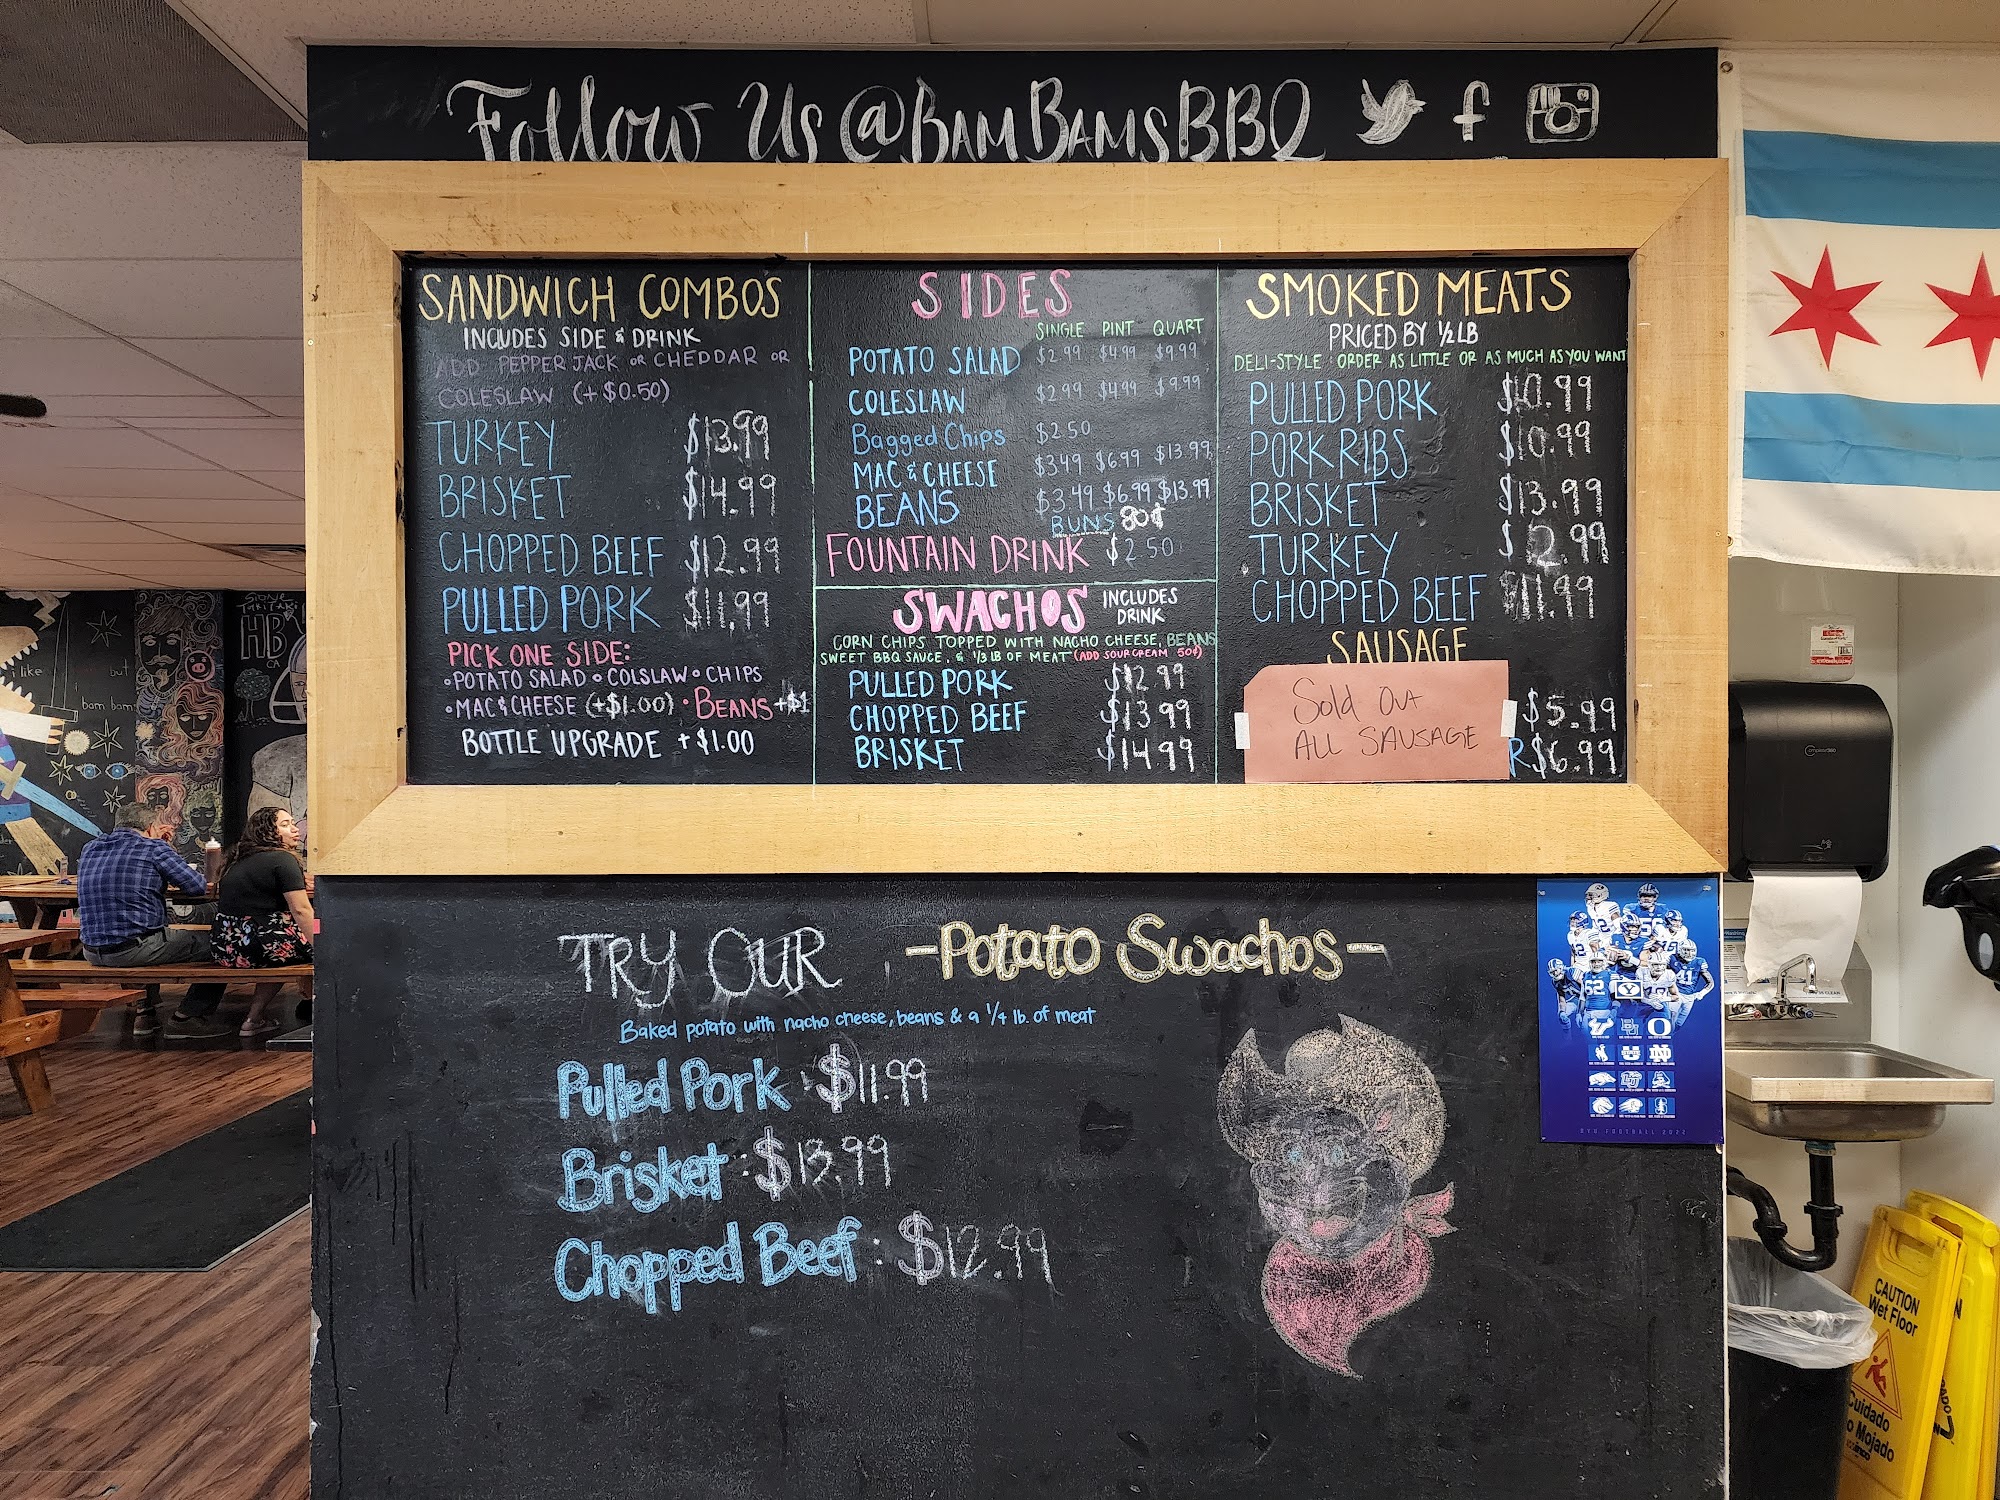 Follow Us @BAMBAMSBBQ f
SANDWICH COMBOS
INCLUDES SIDE & DRINK
ADD PEPPER JACK OR CHEDDAR OR
COLESLAW (+$0.50)
TURKEY $13.99
BRISKET $14.99
CHOPPED BEEF $12.99
PULLED PORK $11.99
PICK ONE SIDE:
•POTATO SALAD •COLSLAW •CHIPS
•MAC & CHEESE (+$1.00) •BEANS +$1
BOTTLE UPGRADE +$1.00
SIDES
SINGLE PINT QUART
POTATO SALAD $2.99 $4.99 $9.99
COLESLAW $2.99 $4.99 $9.99
Bagged Chips $2.50
MAC & CHEESE $3.49 $6.99 $13.99
BEANS $3.49 $6.99 $13.99
BUNS 80¢
FOUNTAIN DRINK $2.50
SWACHOS INCLUDES
DRINK
CORN CHIPS TOPPED WITH NACHO CHEESE, BEANS
SWEET BBQ SAUCE, & 1/3 LB OF MEAT (ADD SOUR CREAM 50¢)
PULLED PORK $12.99
CHOPPED BEEF $13.99
BRISKET $14.99
SMOKED MEATS
PRICED BY ½ LB
DELI-STYLE: ORDER AS LITTLE OR AS MUCH AS YOU WANT
PULLED PORK $10.99
PORK RIBS $10.99
BRISKET $13.99
TURKEY $12.99
CHOPPED BEEF $11.99
SAUSAGE
Sold Out
ALL SAUSAGE
$5.99
R $6.99
TRY OUR -Potato Swachos-
Baked potato with nacho cheese, beans & a 1/4 lb. of meat
Pulled Pork : $11.99
Brisket : $13.99
Chopped Beef : $12.99
i like but
bam bam
HB
CA
BYU FOOTBALL 2022
CAUTION
Wet Floor
Cuidado
o Mojado